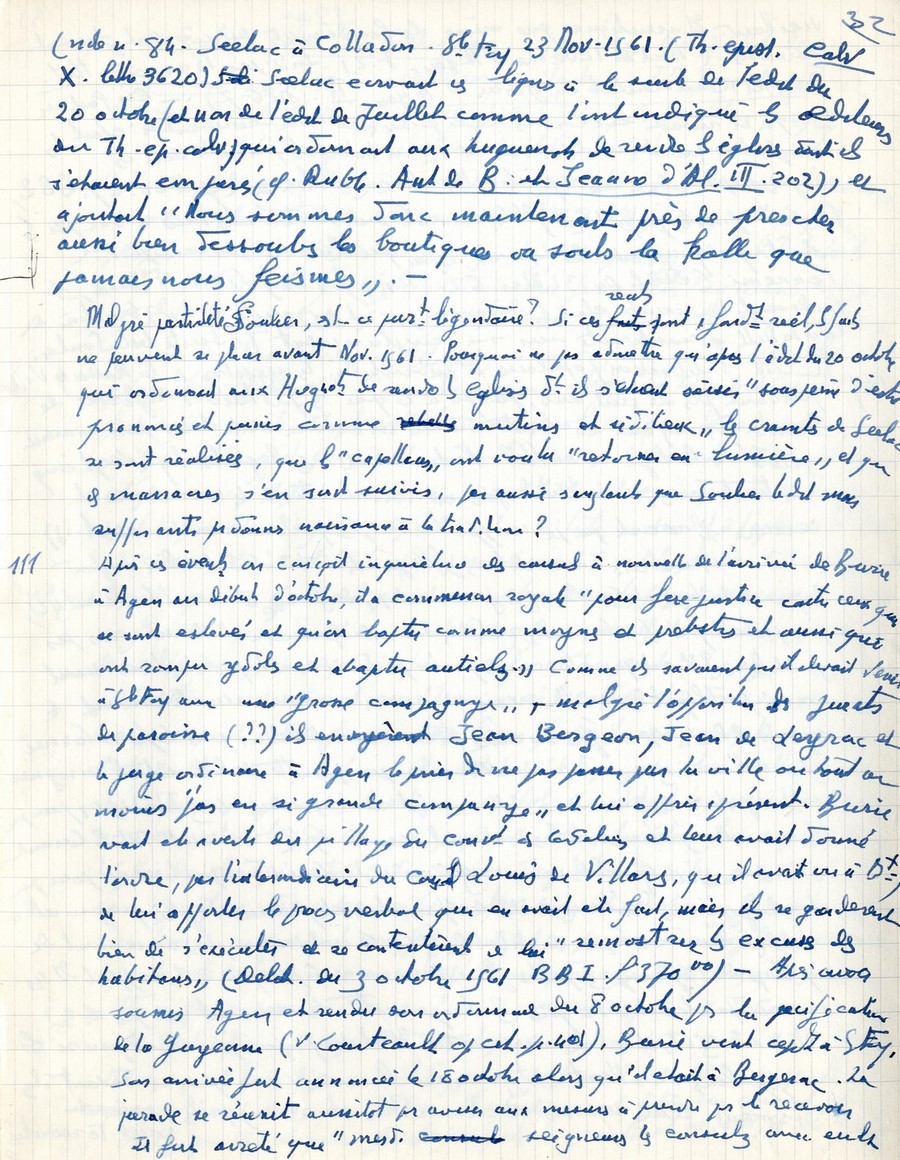 32
(note n. 84. Seelac à Colladon. Ste Foy 23 Nov. 1561. (Th. epist. Calv
X. lettre 3620) Seelac ecrivait ces lignes à la suite de l'edit du
20 octobre (et non de l'edit de Juillet comme l'ont indiqué les editeurs
du Th. ep. calv) qui ordonnait aux huguenots de rendre les églises dont ils
s'etaient emparés (cf. Ruble. Ant. de B. et Jeanne d'Al. III. 202), et
ajoutait "Nous sommes donc maintenant près de prescher
aussi bien dessoubz les boutiques ou soubs la halle que
jamais nous feismes". —
Malgré partialité Soulier, est-ce purt légendaire? Si ces faits recits sont, fondt réel, les faits
ne peuvent se placer avant Nov. 1561. Pourquoi ne pas admettre qu'apres l'édit du 20 octobre
qui ordonnait aux Hugnots de rendre les eglises dt ils s'etaient saisis "sous peine d'estre
prononcés et punis comme rebelles mutins et séditieux", les craintes de Seelac
se sont réalisées, que les "capellans" ont voulu "retourner en lumière", et que
des massacres s'en sont suivis, pas aussi sanglants que Soulier le dit mais
suffisants pr donner naissance à la tradition?
111
Après ces évents on conçoit inquiétude des consuls à nouvelle de l'arrivée de Burie
à Agen au début d'octobre, il a commission royale "pour fere justice contre ceux qui
se sont eslevés et qu'on baptu comme moynes et prebstres et aussi qui
ont rompu ydoles et abaptu autielz". Comme ils savaient qu'il devait venir
à Ste Foy avec une "grosse compagnye", malgré l'opposition des
de paroisse (??) ils envoyèrent Jean Bergeon, Jean de Leyrac et
le juge ordinaire à Agen le prier de ne pas passer par la ville ou tout au
moins "pas en si grande compagnye" et lui offrir 1 présent. Burie
avait été averti du pillage du couvt des Cordeliers et leur avait donné
l'ordre, par l'intermédiaire du consul Louis de Villars, qu'il avait vu à Bx,
de lui apporter le proces verbal qui en avait été fait, mais ils se garderent
bien de s'exécuter et se contentèrent de lui "remostrer les excuses des
habitans" (delib. du 3 octobre 1561 BB I. f° 370 vo) — Après avoir
soumis Agen et rendu son ordonnance du 8 octobre pr la pacification
de la Guyenne (v. Courteault op cit. p. 401), Burie vint à Ste Foy.
Son arrivée fut annoncée le 18 octobre alors qu'il etait à Bergerac. La
jurade se réunit aussitot pr aviser aux mesures à prendre pr le recevoir
Il fut arreté que "mest. consuls seigneurs les consulz avec eulx